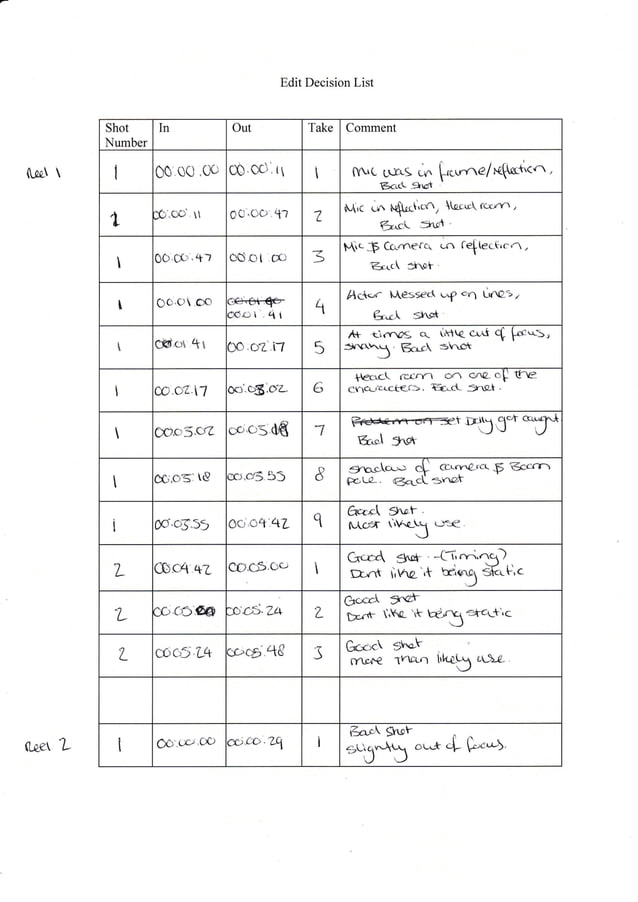 Edit Decision List
Shot Number In Out Take Comment
Reel 1
1 00:00.00 00:00:11 1 Mic was in frame/reflection,
Bad shot.
1 00:00:11 00:00:47 2 Mic in reflection, Head room,
Bad shot.
1 00:00:47 00:01:00 3 Mic & Camera in reflection,
Bad shot.
1 00:01.00 00:01:40 00:01:41 4 Actor Messed up on lines,
Bad shot.
1 00:01 41 00:02:17 5 At times a little out of focus,
shany. Bad shot
1 00:02.17 00:03:02 6 Head room on one of the
characters. Bad shot.
1 00:03.02 00:03:18 7 Problem on set Dolly got caught
Bad shot
1 00:03:18 00:03:55 8 shadow of camera & Boom
pole. Bad shot
1 00:03:55 00:04:42 9 Good shot.
Most likely use.
2 00:04.42 00:05:00 1 Good shot - (Timing)
Dont like it being static
2 00:05:00 00:05:24 2 Good shot
Dont like it being static
2 00:05:24 00:05:48 3 Good shot
more than likely use.
Reel 2
1 00:00:00 00:00:29 1 Bad shot
slightly out of focus.